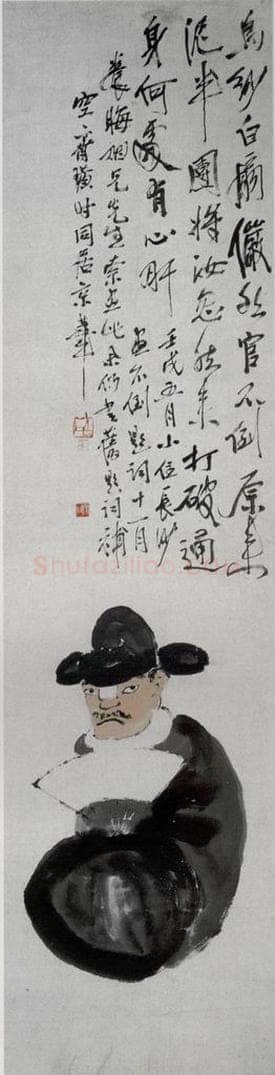 烏紗白扇儼然官不倒原來
泥半團將汝忽然來打破通
身何處有心肝
壬戌五月小住長沙
畫不倒題詞十一月
養晦仁兄先生索畫此余仍書舊題詞補
空齊璜時同居京華
Shufaziliao.com